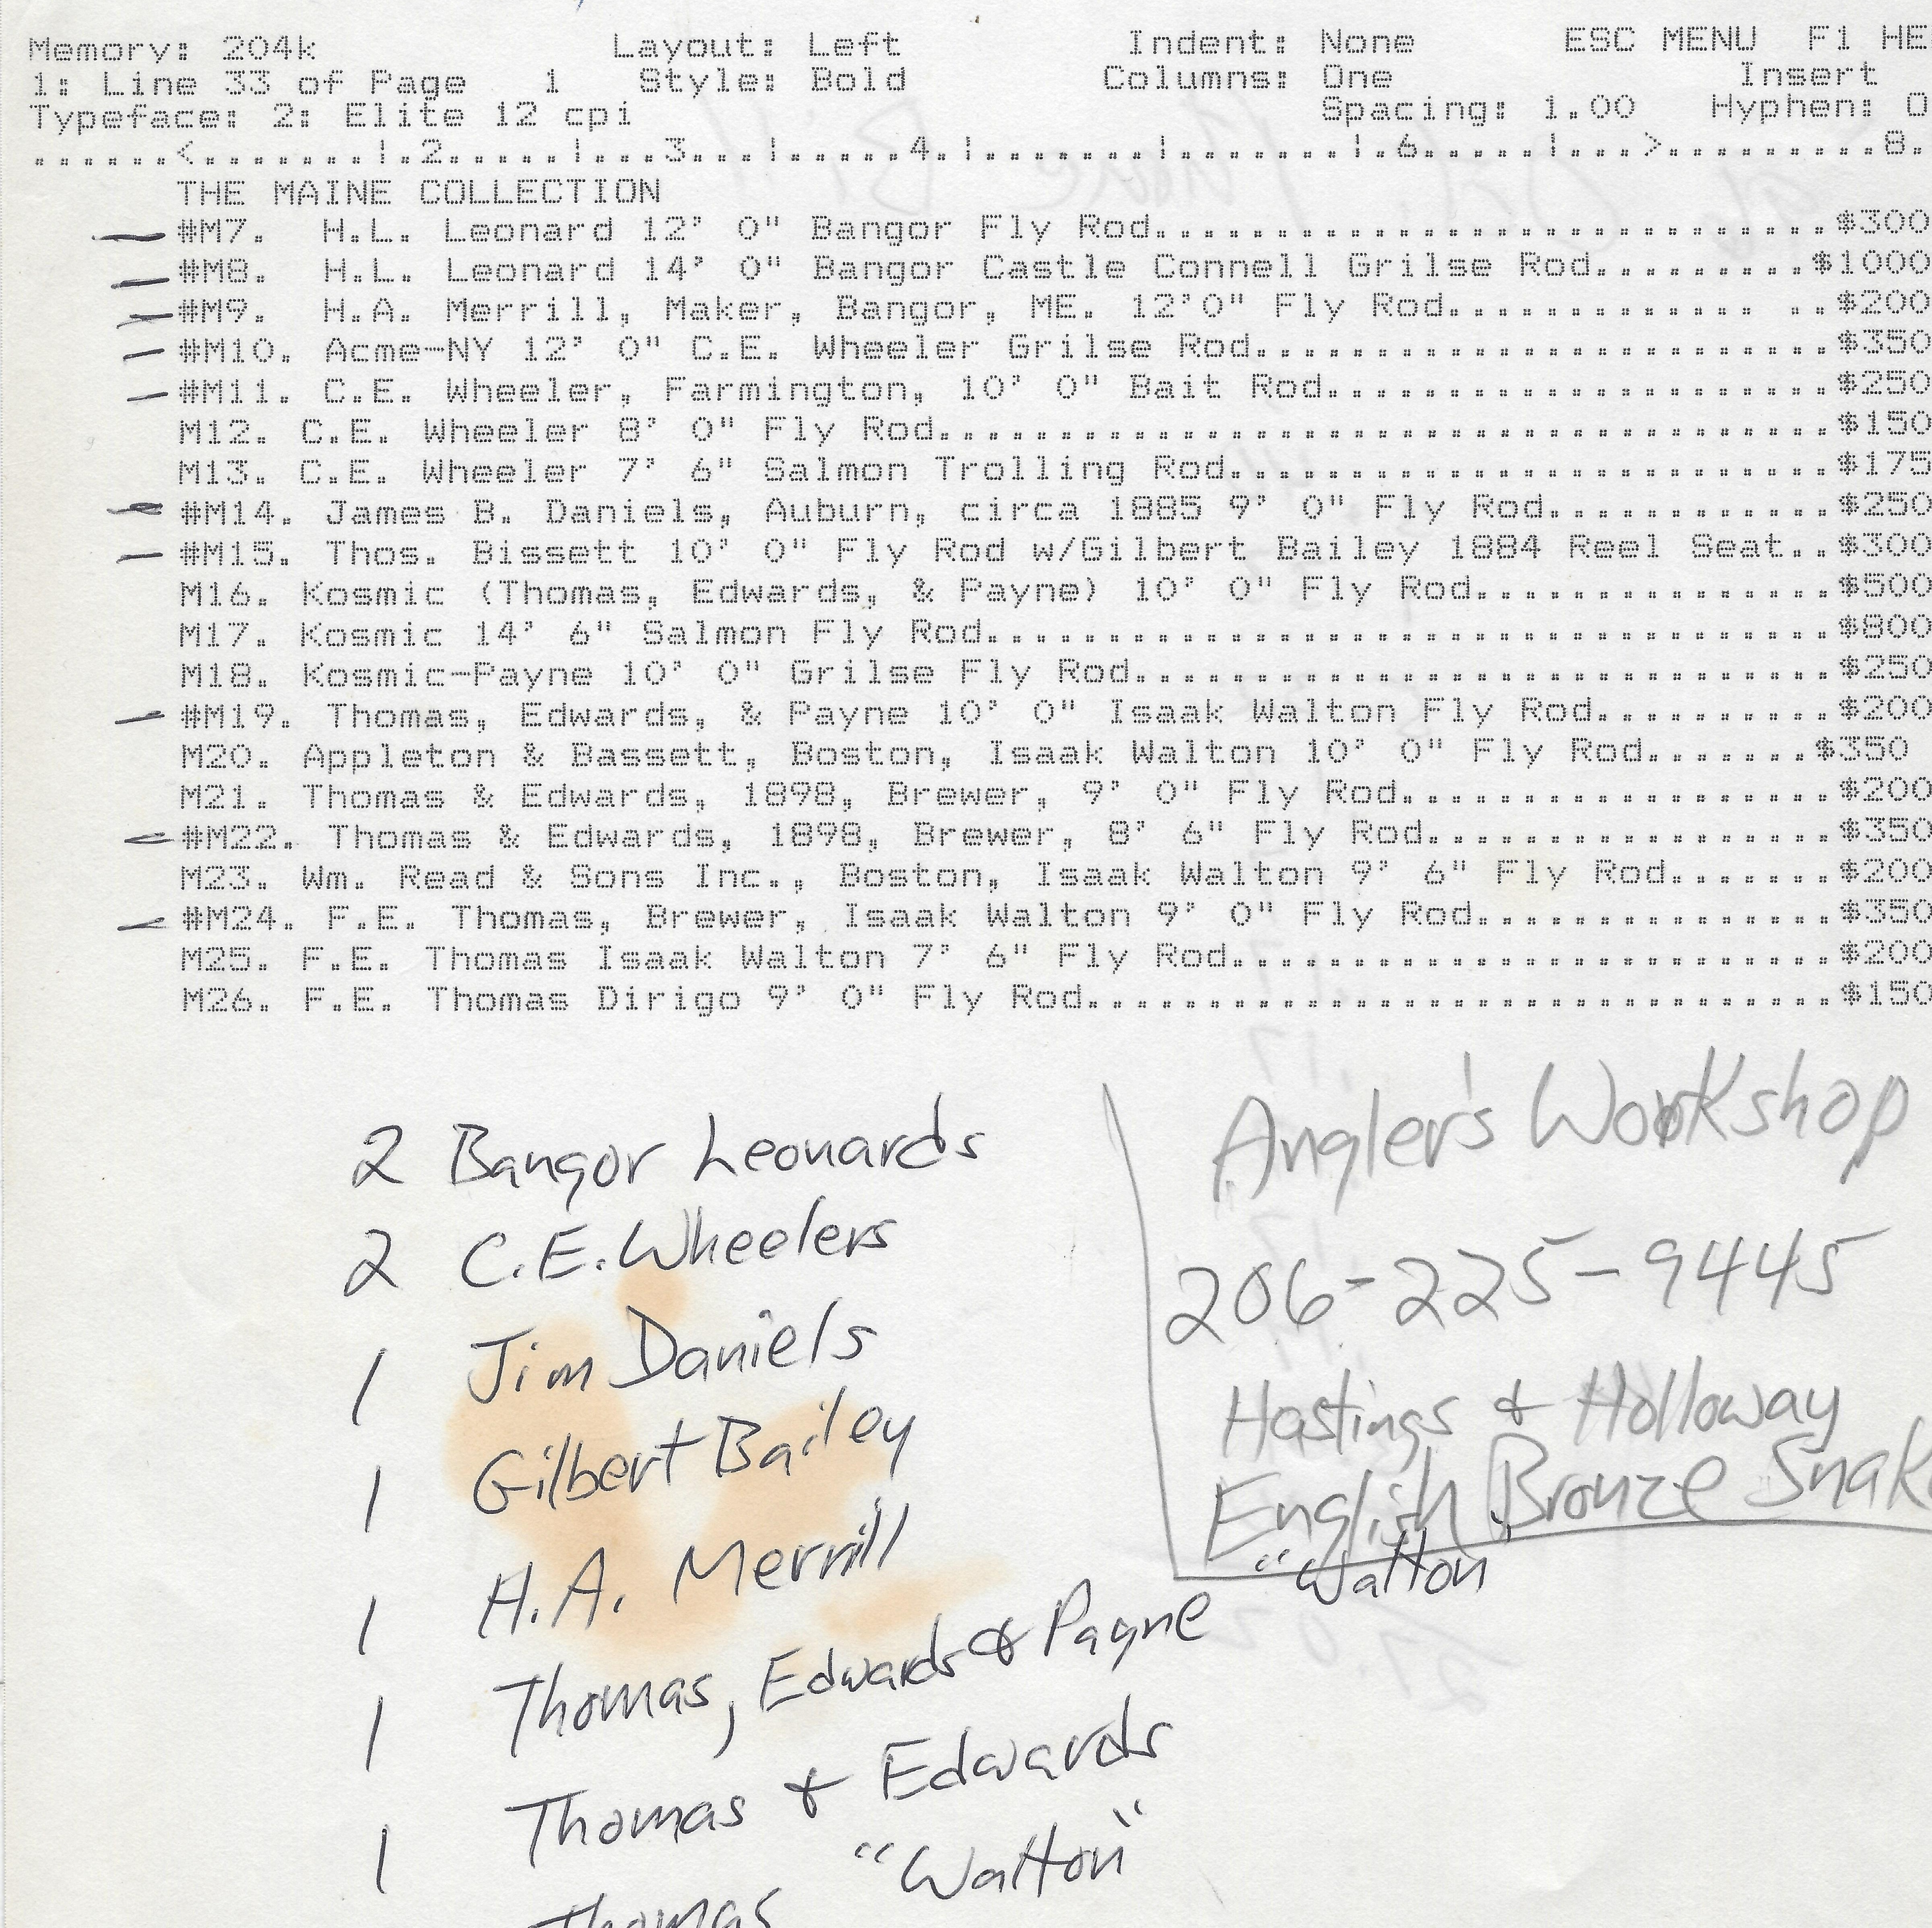 Memory: 204k Layout: Left Indent: None ESC MENU F1 HE
1: Line 33 of Page 1 Style: Bold Columns: One Insert
Typeface: 2: Elite 12 cpi Spacing: 1.00 Hyphen: O
......<.......|.2......|...3...|.....4.|.......|.......|.6.....|...>.........8.
THE MAINE COLLECTION
#M7. H.L. Leonard 12' 0" Bangor Fly Rod............................$300
#M8. H.L. Leonard 14' 0" Bangor Castle Connell Grilse Rod.........$1000
#M9. H.A. Merrill, Maker, Bangor, ME. 12'0" Fly Rod............. ..$200
#M10. Acme-NY 12' 0" C.E. Wheeler Grilse Rod........................$350
#M11. C.E. Wheeler, Farmington, 10' 0" Bait Rod.....................$250
M12. C.E. Wheeler 8' 0" Fly Rod.....................................$150
M13. C.E. Wheeler 7' 6" Salmon Trolling Rod.........................$175
#M14. James B. Daniels, Auburn, circa 1885 9' 0" Fly Rod............$250
#M15. Thos. Bissett 10' 0" Fly Rod w/Gilbert Bailey 1884 Reel Seat..$300
M16. Kosmic (Thomas, Edwards, & Payne) 10' 0" Fly Rod...............$500
M17. Kosmic 14' 6" Salmon Fly Rod...................................$800
M18. Kosmic-Payne 10' 0" Grilse Fly Rod.............................$250
#M19. Thomas, Edwards, & Payne 10' 0" Isaak Walton Fly Rod..........$200
M20. Appleton & Bassett, Boston, Isaak Walton 10' 0" Fly Rod.......$350
M21. Thomas & Edwards, 1898, Brewer, 9' 0" Fly Rod..................$200
#M22. Thomas & Edwards, 1898, Brewer, 8' 6" Fly Rod.................$350
M23. Wm. Read & Sons Inc., Boston, Isaak Walton 9' 6" Fly Rod.......$200
#M24. F.E. Thomas, Brewer, Isaak Walton 9' 0" Fly Rod...............$350
M25. F.E. Thomas Isaak Walton 7' 6" Fly Rod.........................$200
M26. F.E. Thomas Dirigo 9' 0" Fly Rod...............................$150
2 Bangor Leonards
2 C.E. Wheelers
1 Jim Daniels
1 Gilbert Bailey
1 H.A. Merrill
1 Thomas, Edwards & Payne "Walton
1 Thomas & Edwards
Thomas "Walton"
Angler's Workshop
206-225-9445
Hastings & Holloway
English Bronze Snak